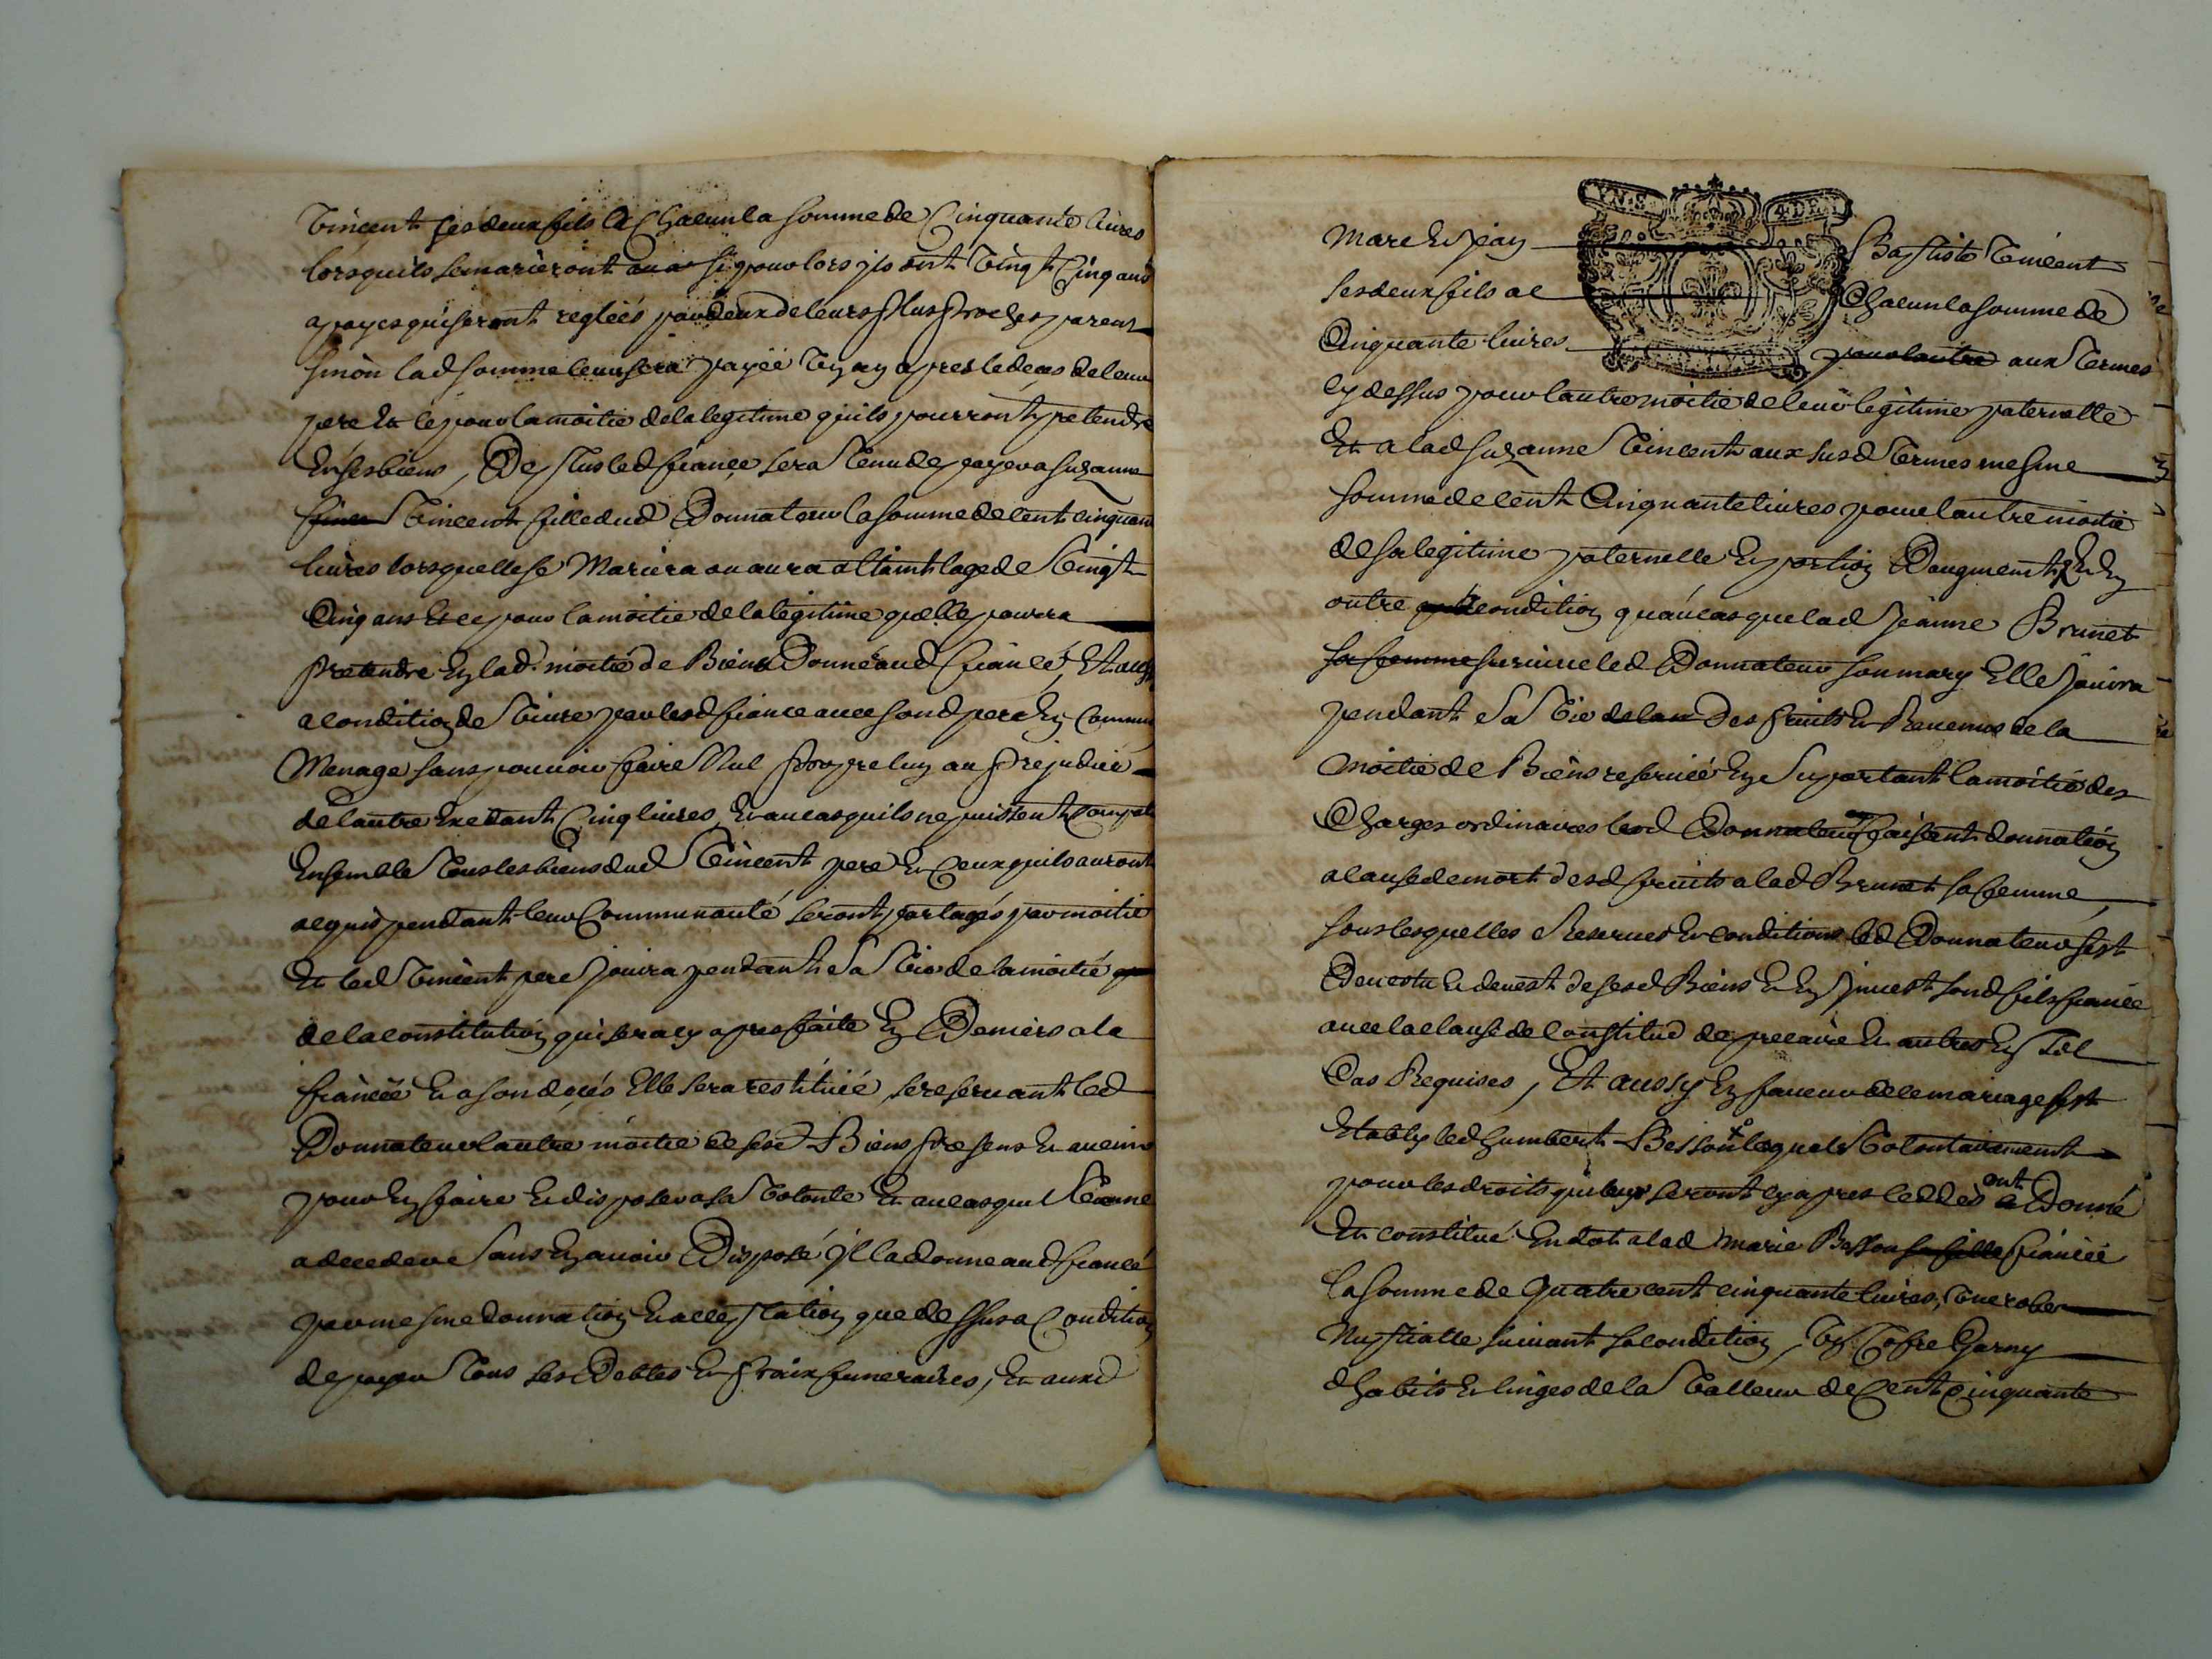 Vincent ses deux fils a Chacun la somme de Cinquante livres
lorsquils semarieront si pour lors ils ont Vingt Cinq ans
a payes qui seront reglées par deux de leurs Plus Proches parens
sinon lad somme leur sera payée apres le deces de leur
pere Et ce pour la moitié de la legitime quils pourront pretendre
En ses biens, De Plus led fiancé sera Tenu de payer a Suzanne
Vincent fille dud Donnateur la somme de cent cinquante
livres lorsquelle se Mariera ou aura attaint lage de Vingt
Cinq ans Et ce pour la moitié de la legitime quelle pourra
Pretendre En lad moitié de Biens Donné aud fiancé, Et aussy
a condition de Vivre par led fiancé avec sond pere En Commun
Menage sans pouvoir faire Nul Propre lun au Prejudice
de lautre Excedant Cinq livres, Et au cas quils ne puissent
Ensemble Tous les biens dud Vincent pere Et Ceux quils auront
acquis pendant leur Communauté seront partagés par moitié
Et led Vincent pere Jouira pendant Sa Vie de la moitié
de la constitution qui sera cy apres faite En Deniers a la
fiancée Et a son decés Elle sera restituée, se reservant led
Donnateur lautre moitié de sesd Biens Presens Et avenir
pour En faire Et disposer a sa Volonté Et au cas quil Vienne
a deceder Sans En avoir Disposé Il la donne aud fiancé
par mesme donnation Et acceptation que dessus a Condition
de payer Tous ses Debtes Et Fraix funeraires, Et auxd
Marc Et Jean Baptiste Vincent
ses deux fils a Chacun la somme de
Cinquante livres pour lautre aux Termes
cy dessus pour lautre moitié de leur legitime paternelle
Et a lad Suzanne Vincent aux susd Termes mesme
somme de cent Cinquante livres pour lautre moitié
de sa legitime paternelle Et portion Daugment, Et En
outre condition quau cas que lad Jeanne Brunet
sa femme survive led Donnateur son mary Elle Jouira
pendant Sa Vie Des fruits Et Revenus de la
moitié de Biens reservée En Suportant la moitié des
Charges ordinaires led Donnateur faisant donnation
a cause de mort desd fruits a lad Brunet sa femme,
sous lesquelles Reserves Et conditions led Donnateur sest
Devestu Et devest de sesd Biens Et En Jnvest sond fils fiancé
avec la clause de Constitud de precaire Et autres En Tel
Cas Requises, Et aussy En faveur de ce mariage sest
Etably led humbert Besson lequel Volontairement
pour les droits qui seront cy apres ont Donné
Et constitué En dot a lad Marie Besson sa fille fiancée
la somme de quatre cent cinquante livres, Une robe
Nuptialle suivant sa condition, Un Cofre Garny
dhabits Et linges de la Valleur de Cent Cinquante